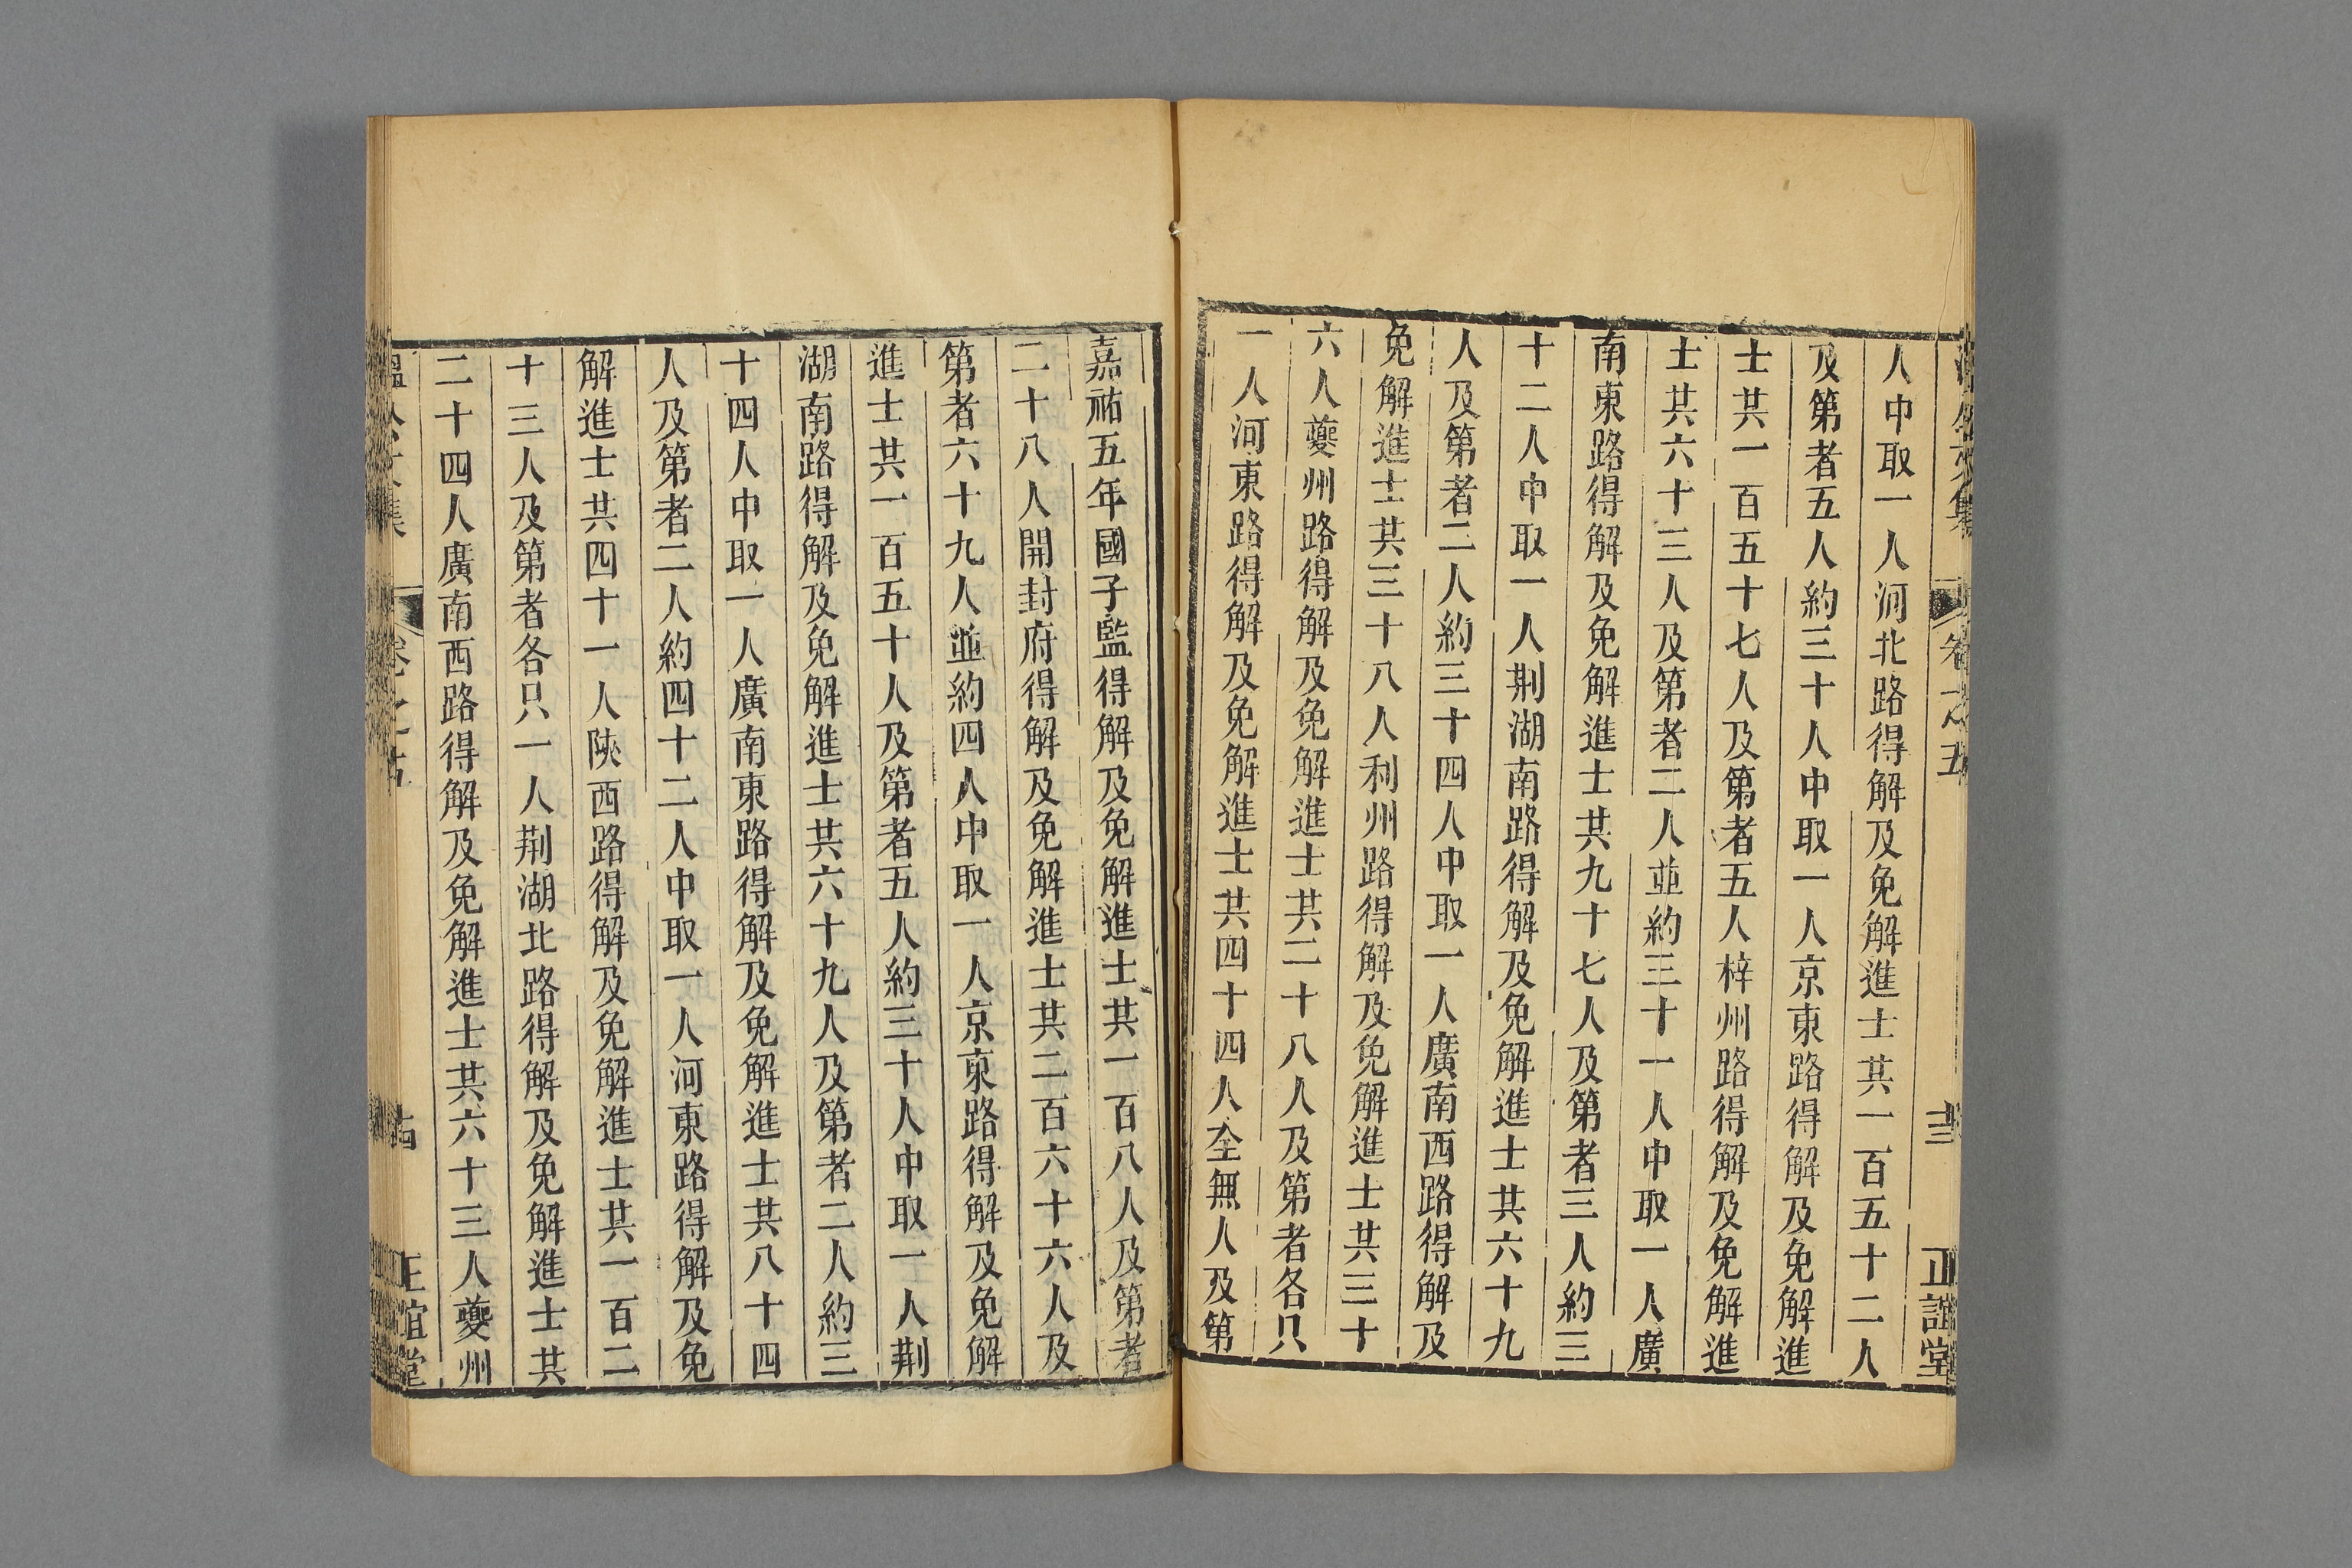 人中取一人河北路得解及免解進士共一百五十二人
及第者五人約三十人中取一人京東路得解及免解進
士共一百五十七人及第者五人梓州路得解及免解進
士共六十三人及第者二人並約三十一人中取一人廣
南東路得解及免解進士共九十七人及第者三人約三
十二人中取一人荆湖南路得解及免解進士共六十九
人及第者二人約三十四人中取一人廣南西路得解及
免解進士共三十八人利州路得解及免解進士共三十
六人夔州路得解及免解進士共二十八人及第者各只
一人河東路得解及免解進士共四十四人全無人及第
嘉祐五年國子監得解及免解進士共一百八人及第者
二十八人開封府得解及免解進士共二百六十六人及
第者六十九人並約四人中取一人京東路得解及免解
進士共一百五十人及第者五人約三十人中取一人荆
湖南路得解及免解進士共六十九人及第者二人約三
十四人中取一人廣南東路得解及免解進士共八十四
人及第者二人約四十二人中取一人河東路得解及免
解進士共四十一人陝西路得解及免解進士共一百二
十三人及第者各只一人荆湖北路得解及免解進士共
二十四人廣南西路得解及免解進士共六十三人夔州
正誼堂